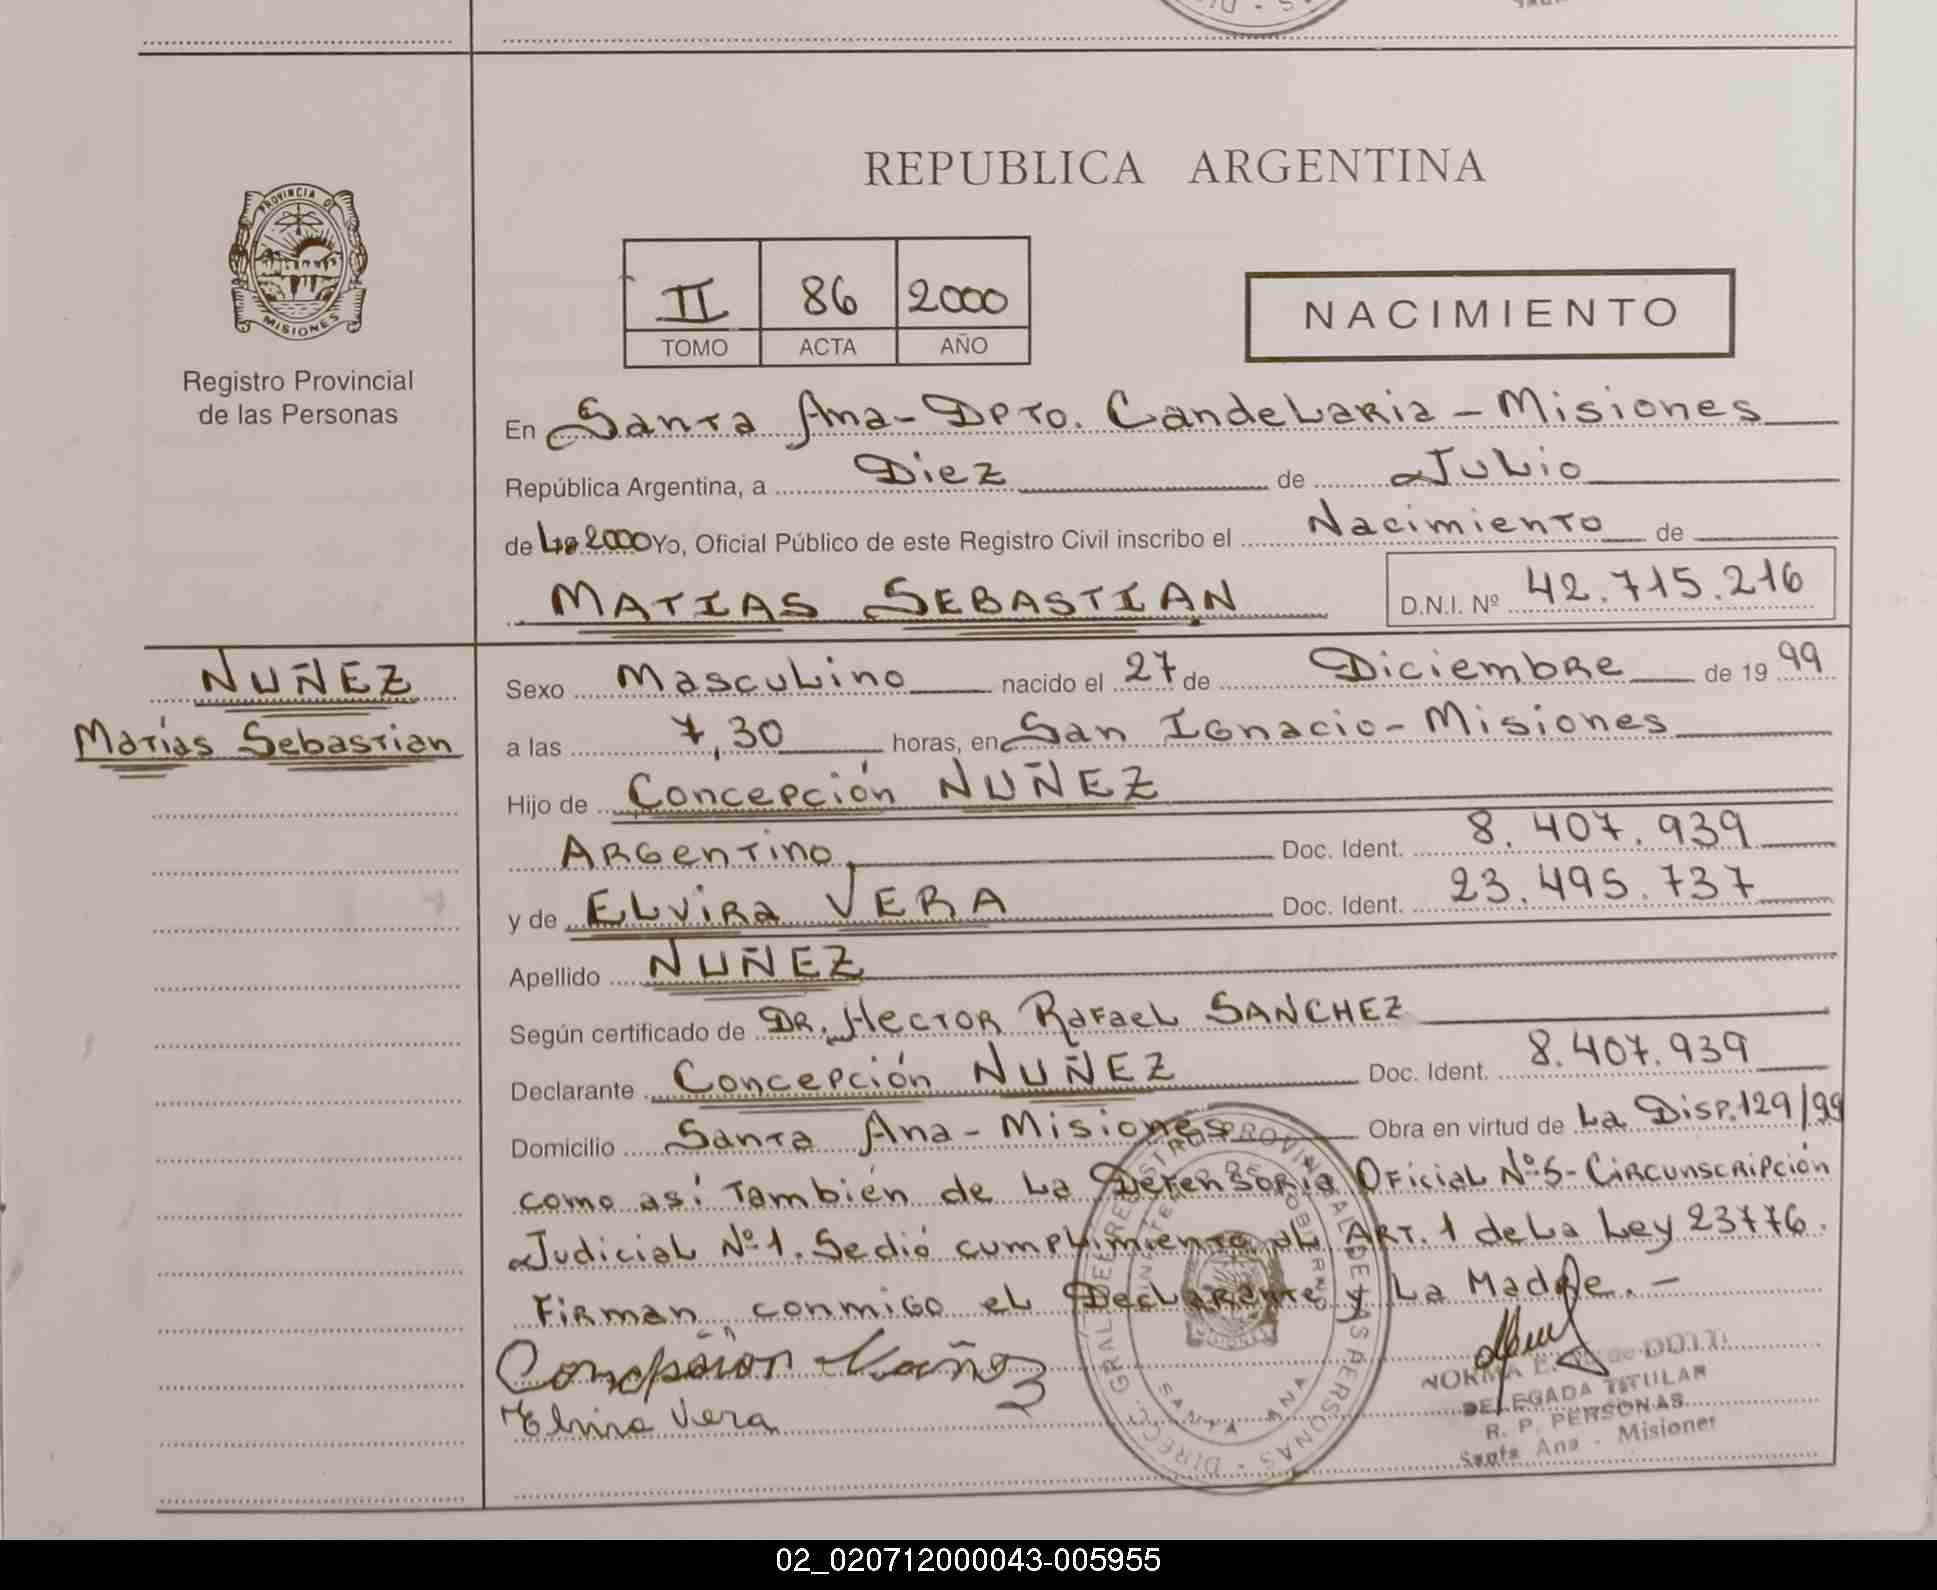 PROVINCIA DE
MISIONES
Registro Provincial
de las Personas
REPUBLICA ARGENTINA
II 86 2000
TOMO ACTA AÑO
NACIMIENTO
En Santa Ana - Dpto. Candelaria - Misiones
República Argentina, a Diez de Julio
de 2000 Yo, Oficial Público de este Registro Civil inscribo el Nacimiento de
MATIAS SEBASTIAN D.N.I. Nº 42.715.216
NUÑEZ
Matías Sebastian
Sexo Masculino nacido el 27 de Diciembre de 19 99
a las 7,30 horas, en San Ignacio - Misiones
Hijo de Concepción NUÑEZ
Argentino Doc. Ident. 8.407.939
y de Elvira VERA Doc. Ident. 23.495.737
Apellido NUÑEZ
Según certificado de DR. Hector Rafael SANCHEZ
Declarante Concepción NUÑEZ Doc. Ident. 8.407.939
Domicilio Santa Ana - Misiones Obra en virtud de La Disp. 129/99
como así también de la Defensoria Oficial Nº 5 - Circunscripción
Judicial Nº 1. Se dió cumplimiento al ART. 1 de la Ley 23776.
Firman conmigo el Declarante y La Madre. -
Concepción Nuñez
Elvira Vera
DIRECC. GRAL. DEL REGISTRO PROVINCIAL DE LAS PERSONAS
MINISTERIO DE GOBIERNO
SANTA ANA
NORMA
DELEGADA TITULAR
R. P. PERSONAS
Santa Ana - Misiones
02_020712000043-005955